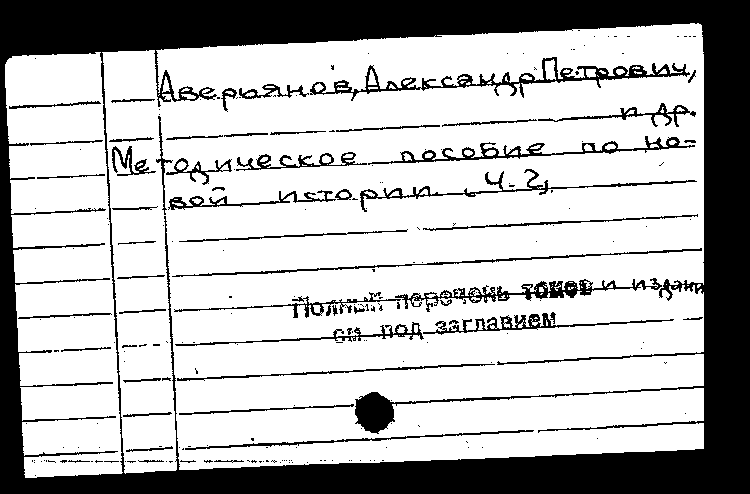 Аверьянов, Александр Петрович,
и др.
Методическое пособие по но-
вой истории. Ч. 2,
Полный перечень томов и издани
см под заглавием